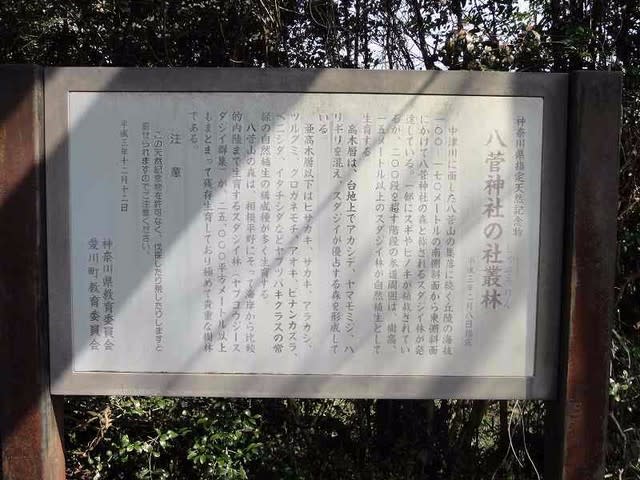 神奈川県指定天然記念物
八菅神社の社叢林
平成三年二月八日指定
中津川に面した八菅山の集落に続く丘陵の海抜
一〇〇―一七〇メートルの南側斜面から東側斜面
にかけて八菅神社の森と称されるスダジイ林が発
達している。一部にスギやヒノキが植栽されてい
るが、三〇〇段を超す階段の参道周囲は、樹高、
一五メートル以上のスダジイ林が自然植生として
生育する。
高木層は、台地上でアカシデ、ヤマモミジ、ハ
リギリを混え、スダジイが優占する森を形成して
いる。
亜高木層以下はヒサカキ、サカキ、アラカシ、
ツルグミ、クロガネモチ、アオキ、ビナンカズラ、
ベニシダ、イタチシダなどヤブツバキクラスの常
緑の自然植生の構成種が多く生育する。
八菅山の森は、相模平野にそって海岸から比較
的内陸まで生育するスダジイ林(ヤブコウジ―ス
ダジイ群集)が、二五、〇〇〇平方メートル以上
もまとまって残存生育しており極めて貴重な樹林
である。
注意
この天然記念物を許可なく、伐採したり荒したりしますと
罰せられますのでご注意ください。
平成三年十二月十二日
神奈川県教育委員会
愛川町教育委員会